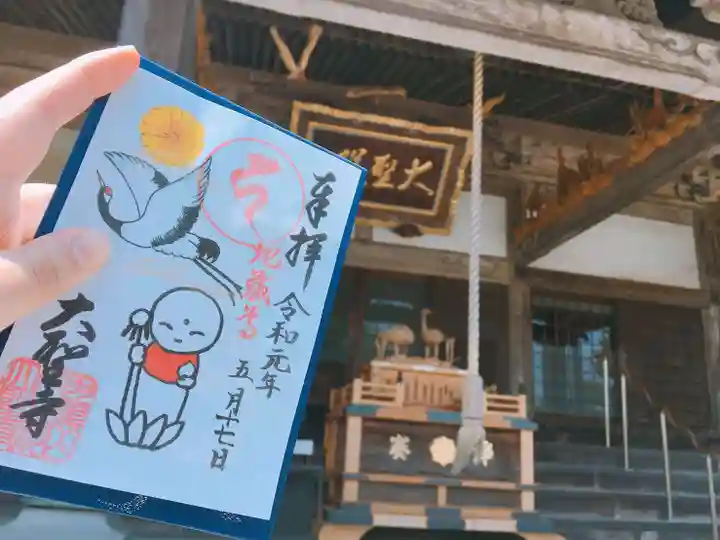 奉拝
令和元年
五月十七日
地蔵尊
大聖寺
大聖
奉